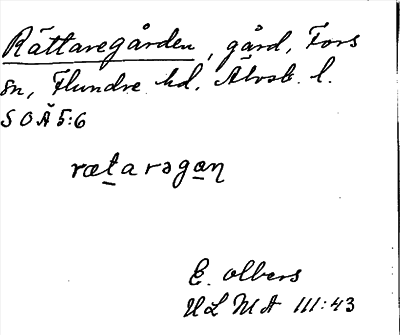 Rättaregården, gård, Fors
sn, Flundre hd, Älvsb. l.
SOÄ 5:6
rætarəgan
E. Olbers
ULMA 111:43